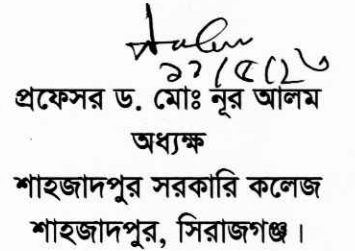 প্রফেসর ড. মোঃ নূর আলম
অধ্যক্ষ
শাহজাদপুর সরকারি কলেজ
শাহজাদপুর, সিরাজগঞ্জ।